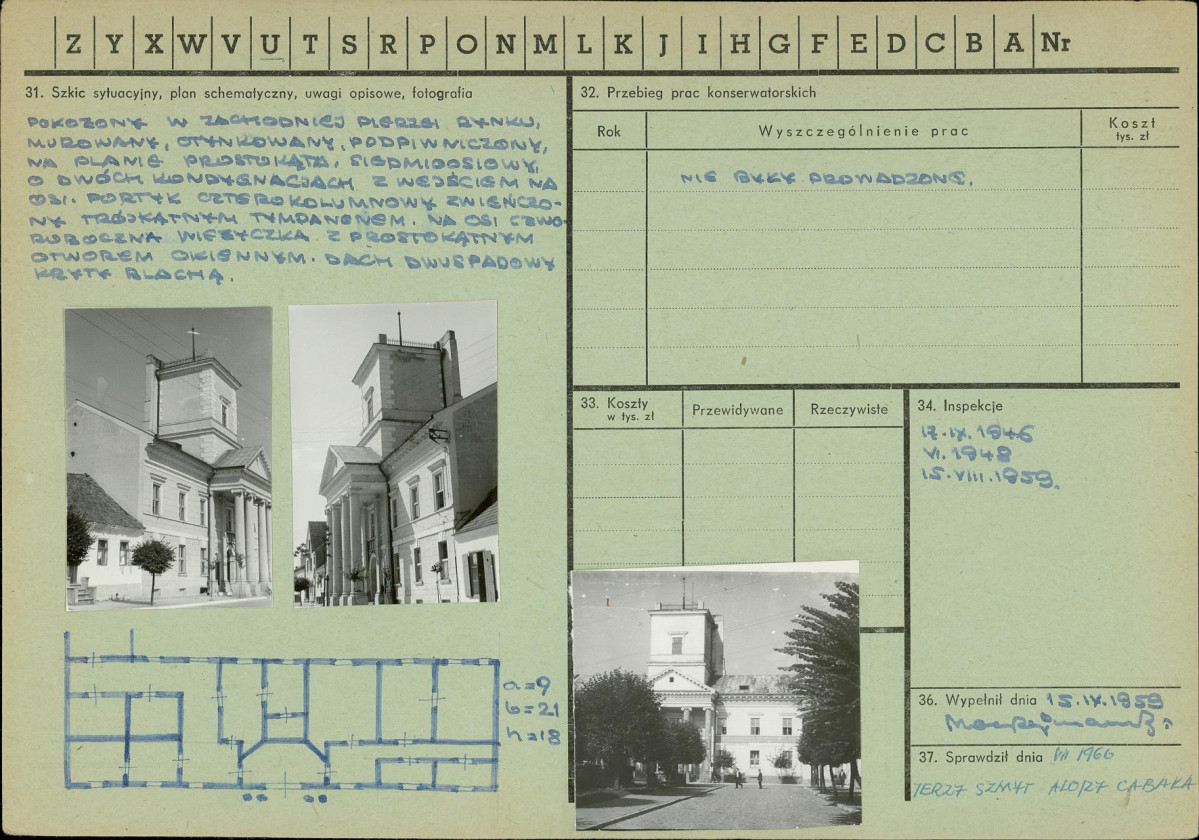 Z Y X W V U T S R P O N M L K J I H G F E D C B A Nr
31. Szkic sytuacyjny, plan schematyczny, uwagi opisowe, fotografia
POŁOŻONY W ZACHODNIEJ PIERZEI RYNKU,
MUROWANY, OTYNKOWANY, PODPIWNICZONY,
NA PLANIE PROSTOKĄTA, SIEDMIOOSIOWY,
O DWÓCH KONDYGNACJACH Z WEJŚCIEM NA
OSI. PORTYK CZTEROKOLUMNOWY ZWIEŃCZO-
NY TRÓJKĄTNYM TYMPANONEM. NA OSI CZWO-
ROBOCZNA WIEŻYCZKA Z PROSTOKĄTNYM
OTWOREM OKIENNYM. DACH DWUSPADOWY
KRYTY BLACHĄ.
a=9
b=21
h=18
32. Przebieg prac konserwatorskich
Rok
Wyszczególnienie prac
Koszt
tys. zł
NIE BYŁY PROWADZONE.
33. Koszty
w tys. zł
Przewidywane
Rzeczywiste
34. Inspekcje
17.IX.1946
VI.1948
15.VIII.1959.
36. Wypełnił dnia 15.IX.1959
37. Sprawdził dnia VII 1966
JERZY SZMYT ALOJZY CABAŁA